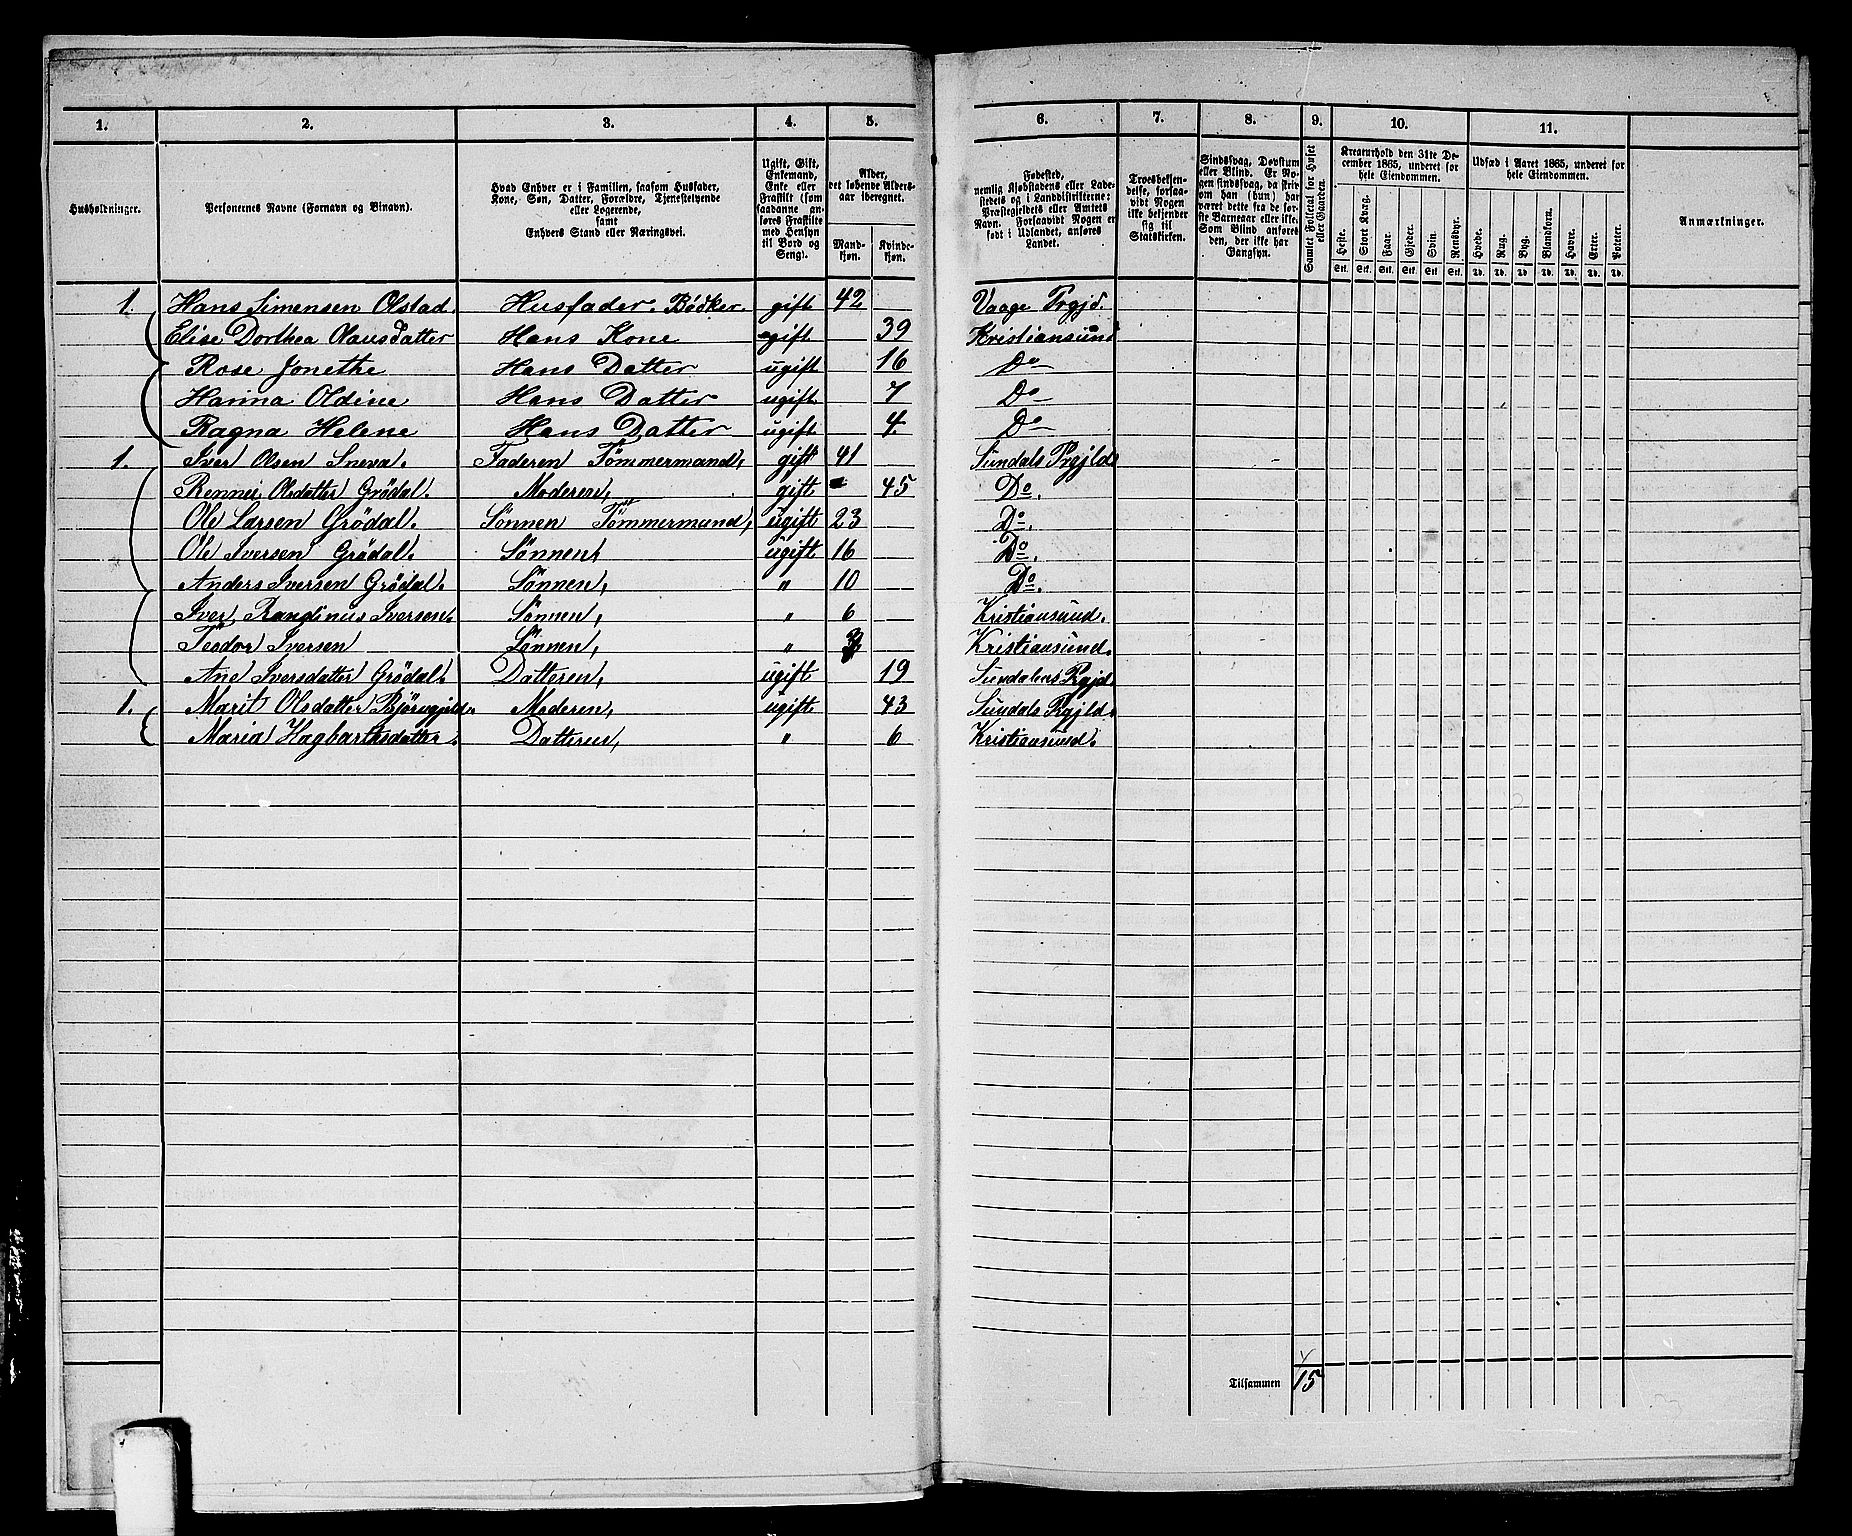 1. 2. 3. 4. 5. 6. 7. 8. 9. 10. 11.
Husholdninger.
Personernes Navne (Fornavn og Binavn).
Hvad Enhver er i Familien, saasom Husfader,
Kone, Søn, Datter, Forældre, Tjenestetyende
eller Logerende,
samt
Enhvers Stand eller Næringsvei.
Ugift, Gift,
Enkemand,
Enke eller
Fraskilt (som
saadanne an-
føres Fraskilte
med Hensyn
til Bord og
Seng).
Alder,
det løbende Alders-
aar iberegnet.
Mand-
kjøn.
Kvinde-
kjøn.
Fødested,
nemlig Kjøbstadens eller Lade-
stedets og i Landdistrikterne:
Præstegjeldets eller Amtets
Navn. Forsaavidt Nogen er
født i Udlandet, anføres
Landet.
Troesbekjen-
delse, forsaa-
vidt Nogen
ikke bekjender
sig til
Statskirken.
Sindssvag, Døvstum
eller Blind. Er No-
gen sindssvag, da skri-
ves om han (hun) har
været dette fra de før-
ste Barneaar eller ikke.
Som Blind anføres
den, der ikke har
Gangsyn.
Samlet Folketal for Huset
eller Gaarden.
Kreaturhold den 31te De-
cember 1865, underet for
hele Eiendommen.
Heste. Stort Kvæg. Faar. Gjeder. Svin. Rensdyr.
Stk. Stk. Stk. Stk. Stk. Stk.
Udsæd i Aaret 1865, underet for
hele Eiendommen.
Hvede. Rug. Byg. Blandkorn. Havre. Erter. Poteter.
Td. Td. Td. Td. Td. Td. Td.
Anmærkninger.
1. Hans Simensen Olstad. Husfader. Bödker. gift 42 Vaage Prgjd.
Elise Dorthea Olausdatter Hans Kone gift 39 Kristiansund
Rose Jonethe Hans Datter ugift 16 Do
Hanna Oldine Hans Datter ugift 7 Do
Ragna Helene Hans Datter ugift 4 Do
1. Iver Olsen Sneva. Faderen Tömmermand, gift 41 Sundals Prgjld
Olsdatter Grödal. Moderen, gift 45 Do.
Ole Larsen Grödal. Sönnen Tömmermand, ugift 23 Do.
Ole Iversen Grödal. Sönnen, ugift 16 Do.
Anders Iversen Grödal. Sönnen, " 10 Do.
Iver Randinus Iversen. Sönnen, " 6 Kristiansund.
Teodor Iversen Sönnen, " 3 Kristiansund.
Ane Iversdatter Grödal. Datteren, ugift 19 Sundalens Pgjd.
1. Marit Olsdatter Moderen, ugift 43 Sundals Pgjld.
Maria Hagbartsdatter. Datteren, " 6 Kristiansund.
Tilsammen 15